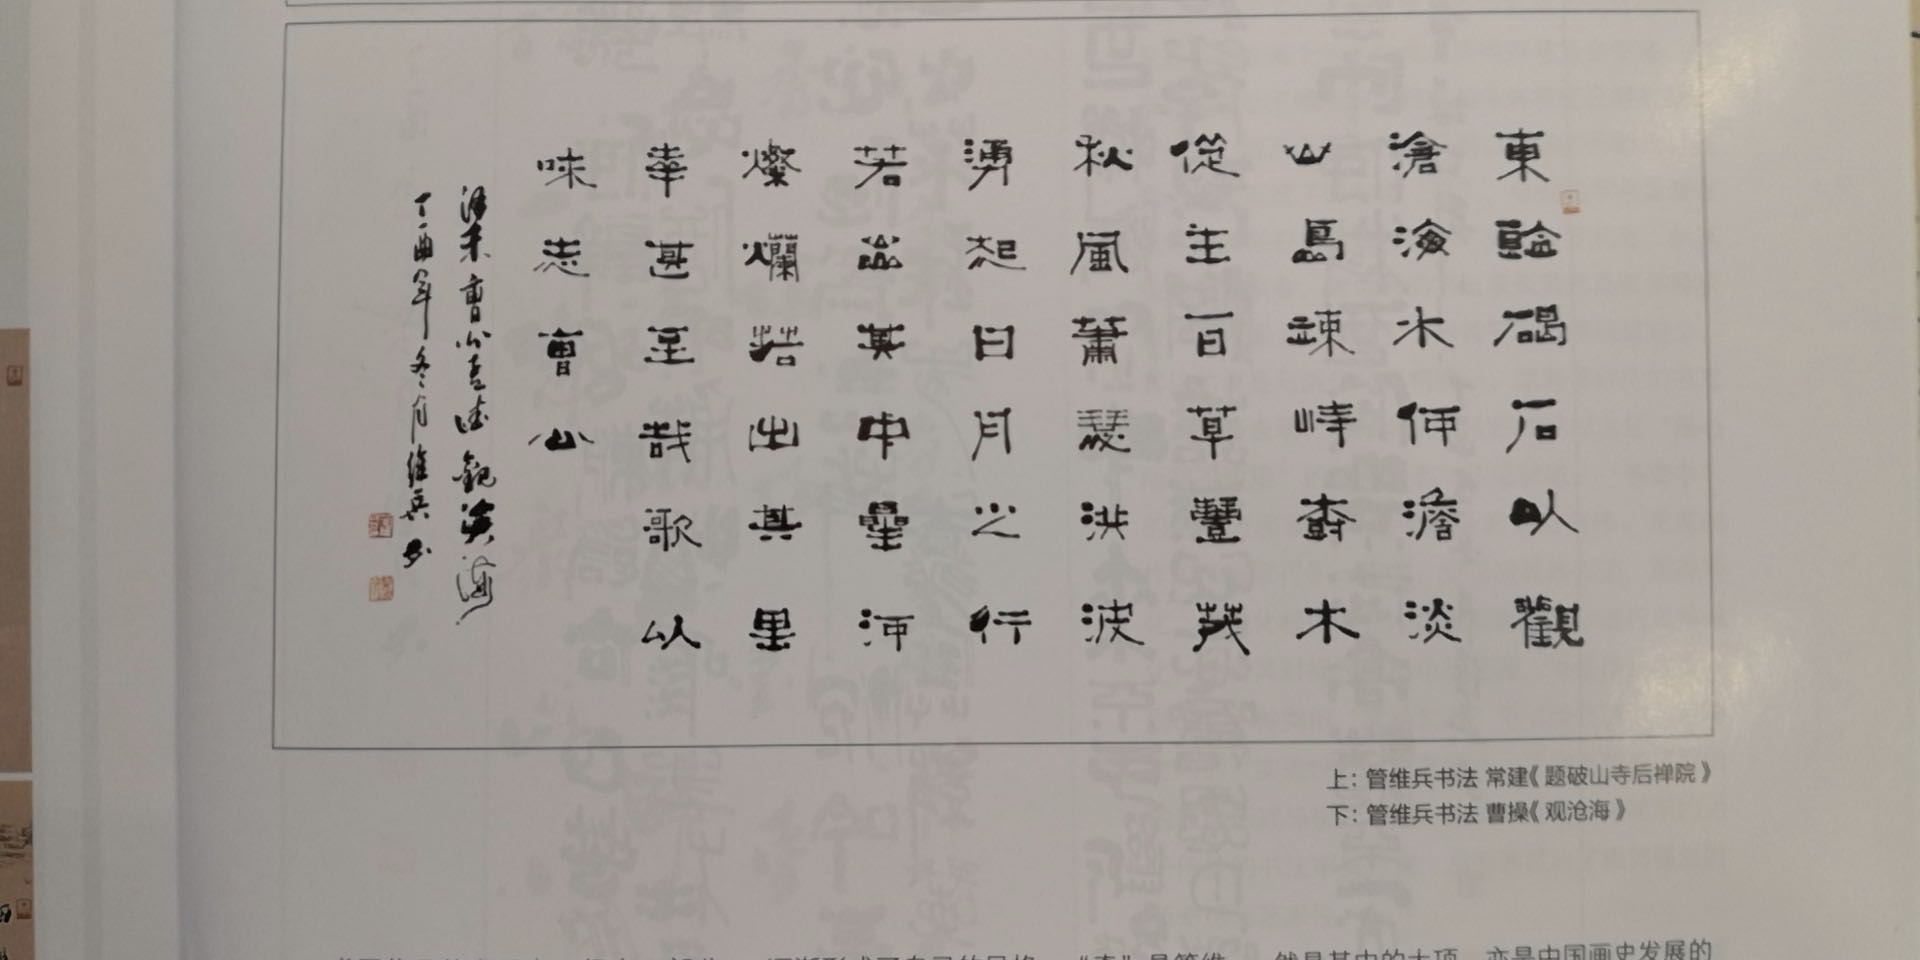 東臨碣石以觀
滄海水何澹淡
山島竦峙樹木
從生百草豐茂
秋風蕭瑟洪波
湧起日月之行
若出其中星河
燦爛若出其里
幸甚至哉歌以
咏志曹公
漢末曹公孟德觀滄海
丁酉年冬月維兵书
上：管维兵书法 常建《题破山寺后禅院》
下：管维兵书法 曹操《观沧海》
然是其中的大项，亦是中国画史发展的